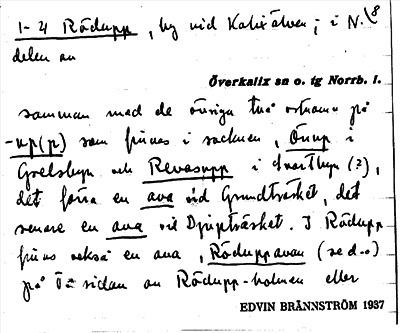 1-4 Rödupp, by vid Kalixälven; i N. 8
delen av
Överkalix sn o. tg Norrb. l.
samman med de övriga två ortnamn på
-up(p) som finnas i socknen, Önup i
Grelsbyn och Revasupp i Svartbyn (?),
det förra en ava vid Grundträsket, det
senare en ava vid Djupträsket. I Rödupp
finns också en ava, Röduppavan (se d.o)
på sidan av Rödupp-holmen eller
EDVIN BRÄNNSTRÖM 1937